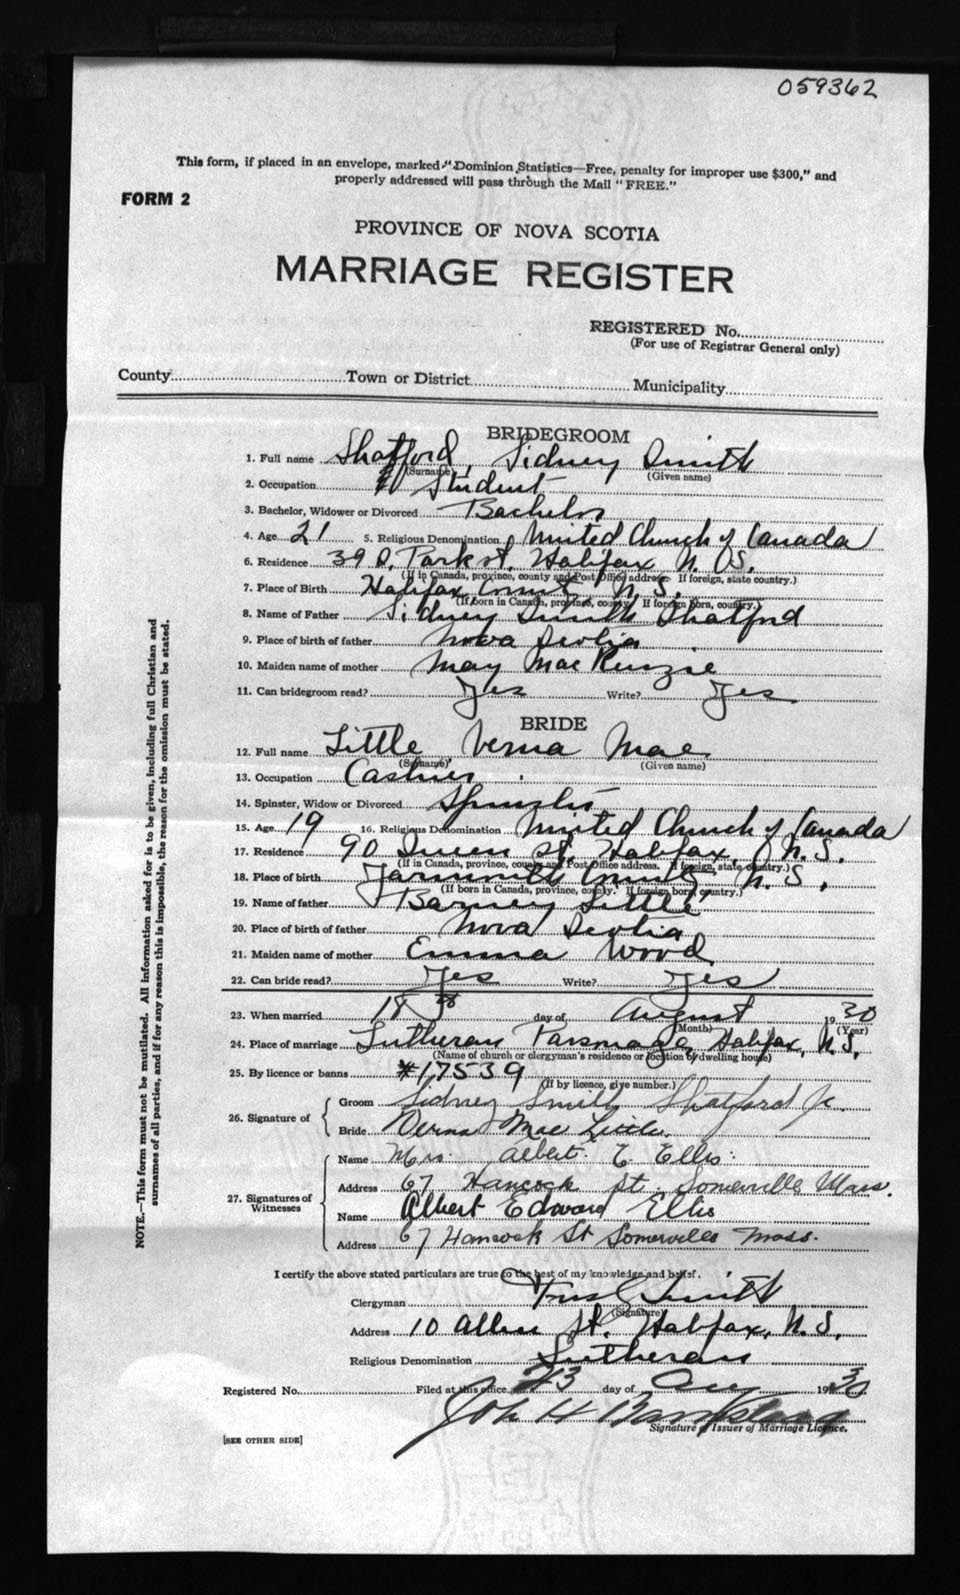 059362
This form, if placed in an envelope, marked "Dominion Statistics—Free, penalty for improper use $300," and
properly addressed will pass through the Mail "FREE."
FORM 2
PROVINCE OF NOVA SCOTIA
MARRIAGE REGISTER
REGISTERED No.
(For use of Registrar General only)
County Town or District Municipality
BRIDEGROOM
1. Full name Shatford, Sidney Smith
(Surname) (Given name)
2. Occupation Student
3. Bachelor, Widower or Divorced Bachelor
4. Age 21 5. Religious Denomination United Church of Canada
6. Residence 39 S. Park st. Halifax N. S.
(If in Canada, province, county and Post Office address. If foreign, state country.)
7. Place of Birth Halifax County N. S.
(If born in Canada, province, county. If foreign born, country.)
8. Name of Father Sidney Smith Shatford
9. Place of birth of father Nova Scotia
10. Maiden name of mother May MacKenzie
11. Can bridegroom read? Yes Write? Yes
BRIDE
12. Full name Little Verna Mae
(Surname) (Given name)
13. Occupation Cashier
14. Spinster, Widow or Divorced Spinster
15. Age 19 16. Religious Denomination United Church of Canada
17. Residence 90 Queen St. Halifax, N.S.
(If in Canada, province, county and Post Office address. If foreign, state country.)
18. Place of birth Yarmouth County, N. S.
(If born in Canada, province, county. If foreign born, country.)
19. Name of father Barney Little
20. Place of birth of father Nova Scotia
21. Maiden name of mother Emma Wood
22. Can bride read? Yes Write? Yes
23. When married 18th day of August 1930
(Month) (Year)
24. Place of marriage Lutheran Parsonage Halifax, N.S.
(Name of church or clergyman's residence or location of dwelling house)
25. By licence or banns #17539
(If by licence, give number.)
26. Signature of
Groom Sidney Smith Shatford Jr.
Bride Verna Mae Little.
27. Signatures of Witnesses
Name Mrs. Albert E. Ellis
Address 67 Hancock St. Somerville Mass.
Name Albert Edward Ellis
Address 67 Hancock St Somerville Mass.
I certify the above stated particulars are true to the best of my knowledge and belief.
Clergyman Smith
(Signature)
Address 10 Allen St. Halifax, N. S.
Religious Denomination Lutheran
Registered No. Filed at this office 23 day of Aug 1930
John H
Signature of Issuer of Marriage Licence.
[SEE OTHER SIDE]
NOTE.—This form must not be mutilated. All information asked for is to be given, including full Christian and
surnames of all parties, and if for any reason this is impossible, the reason for the omission must be stated.